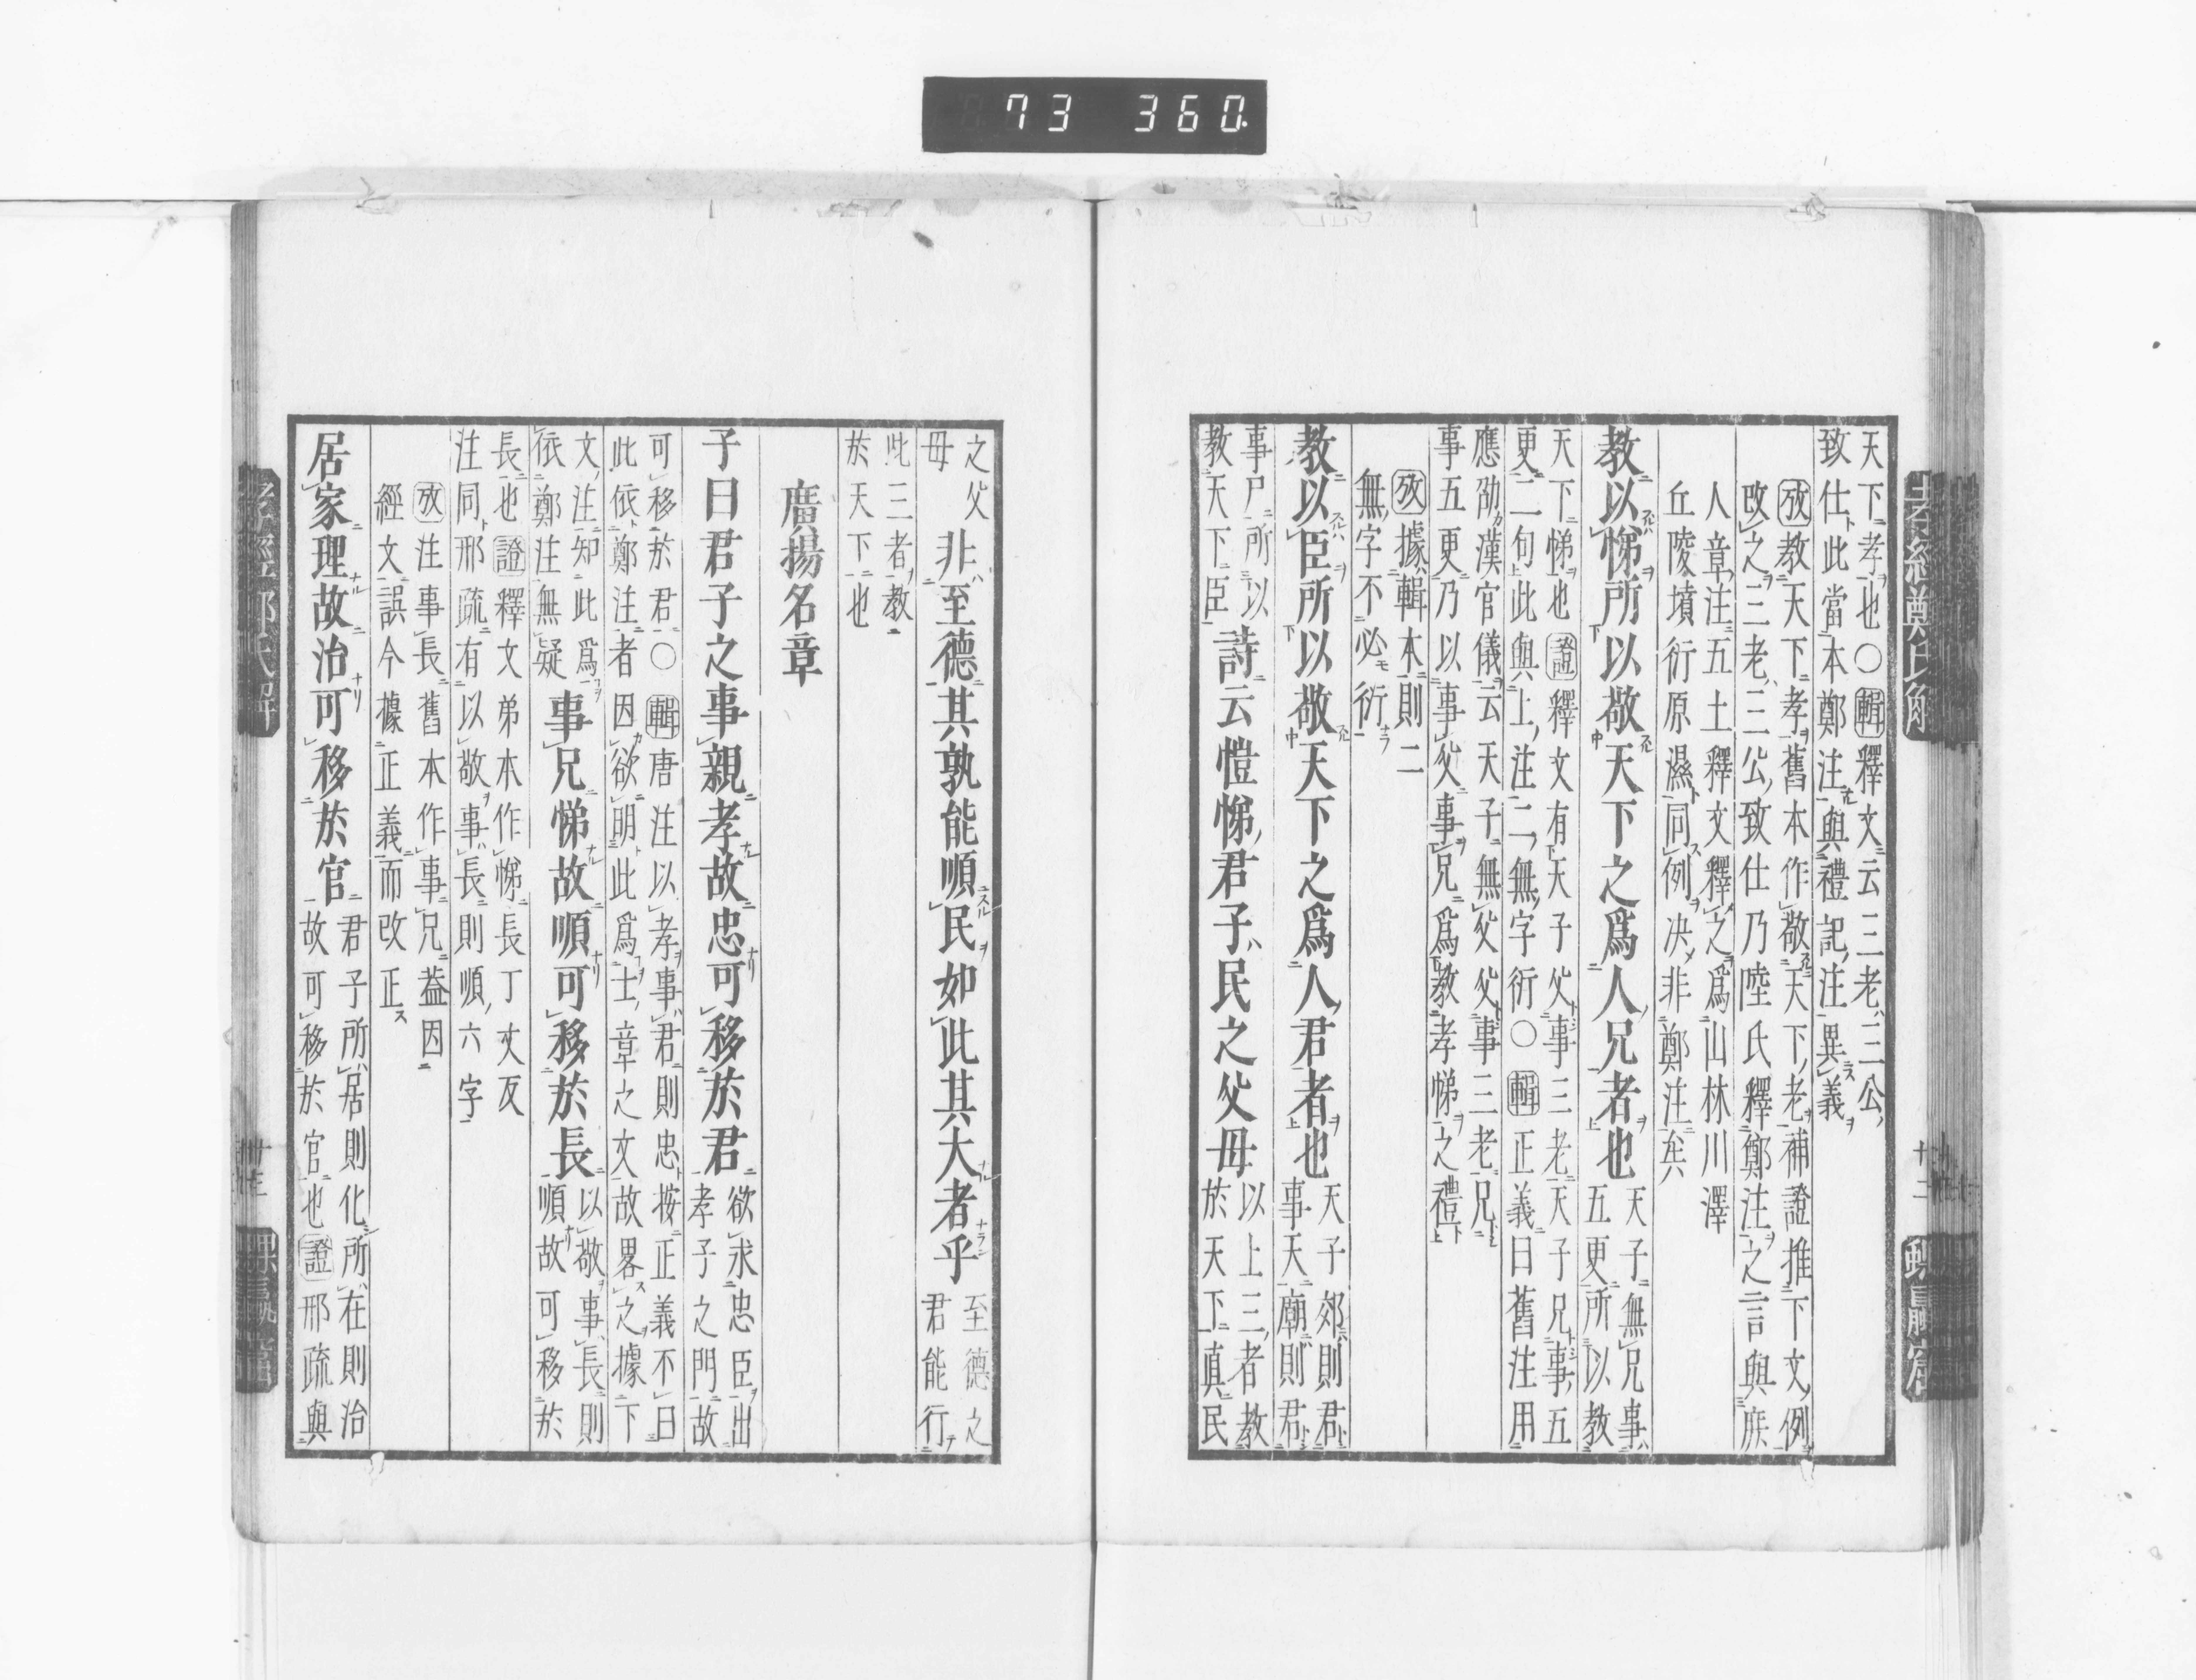 73 360
天下孝也〇輯釋文云三老三公
致仕此當本鄭注與禮記注異義
攷教天下孝舊本作敬天下老補證推下文例
改之三老三公致仕乃陸氏釋鄭注之言與庶
人章注五土釋文釋之爲山林川澤
丘陵墳衍原濕同例决非鄭注矣
教以悌所以敬天下之爲人兄者也
天子無兄事
五更所以教
天下悌也證釋文有天子父事三老天子兄事五
更二句此與上注二無字衍〇輯正義曰舊注用
應劭漢官儀云天子無父父事三老兄
事五更乃以事父事兄爲教孝悌之禮
攷據輯本則二
無字不必衍
教以臣所以敬天下之爲人君者也
天子郊則君
事天廟則君
事尸所以
教天下臣
詩云愷悌君子民之父母
以上三者教
於天下真民
之父
母
非至德其孰能順民如此其大者乎
至德之
君能行
此三者教
於天下也
廣揚名章
子曰君子之事親孝故忠可移於君
欲求忠臣出
孝子之門故
可移於君〇輯唐注以孝事君則忠按正義不曰
此依鄭注者因欲明此爲士章之文故畧之據下
文注知此爲
依鄭注無疑
事兄悌故順可移於長
以敬事長則
順故可移於
長也證釋文弟本作悌長丁丈反
注同邢疏有以敬事長則順六字
攷注事長舊本作事兄葢因
經文誤今據正義而改正
居家理故治可移於官
君子所居則化所在則治
故可移於官也證邢疏與
孝經鄭氏解